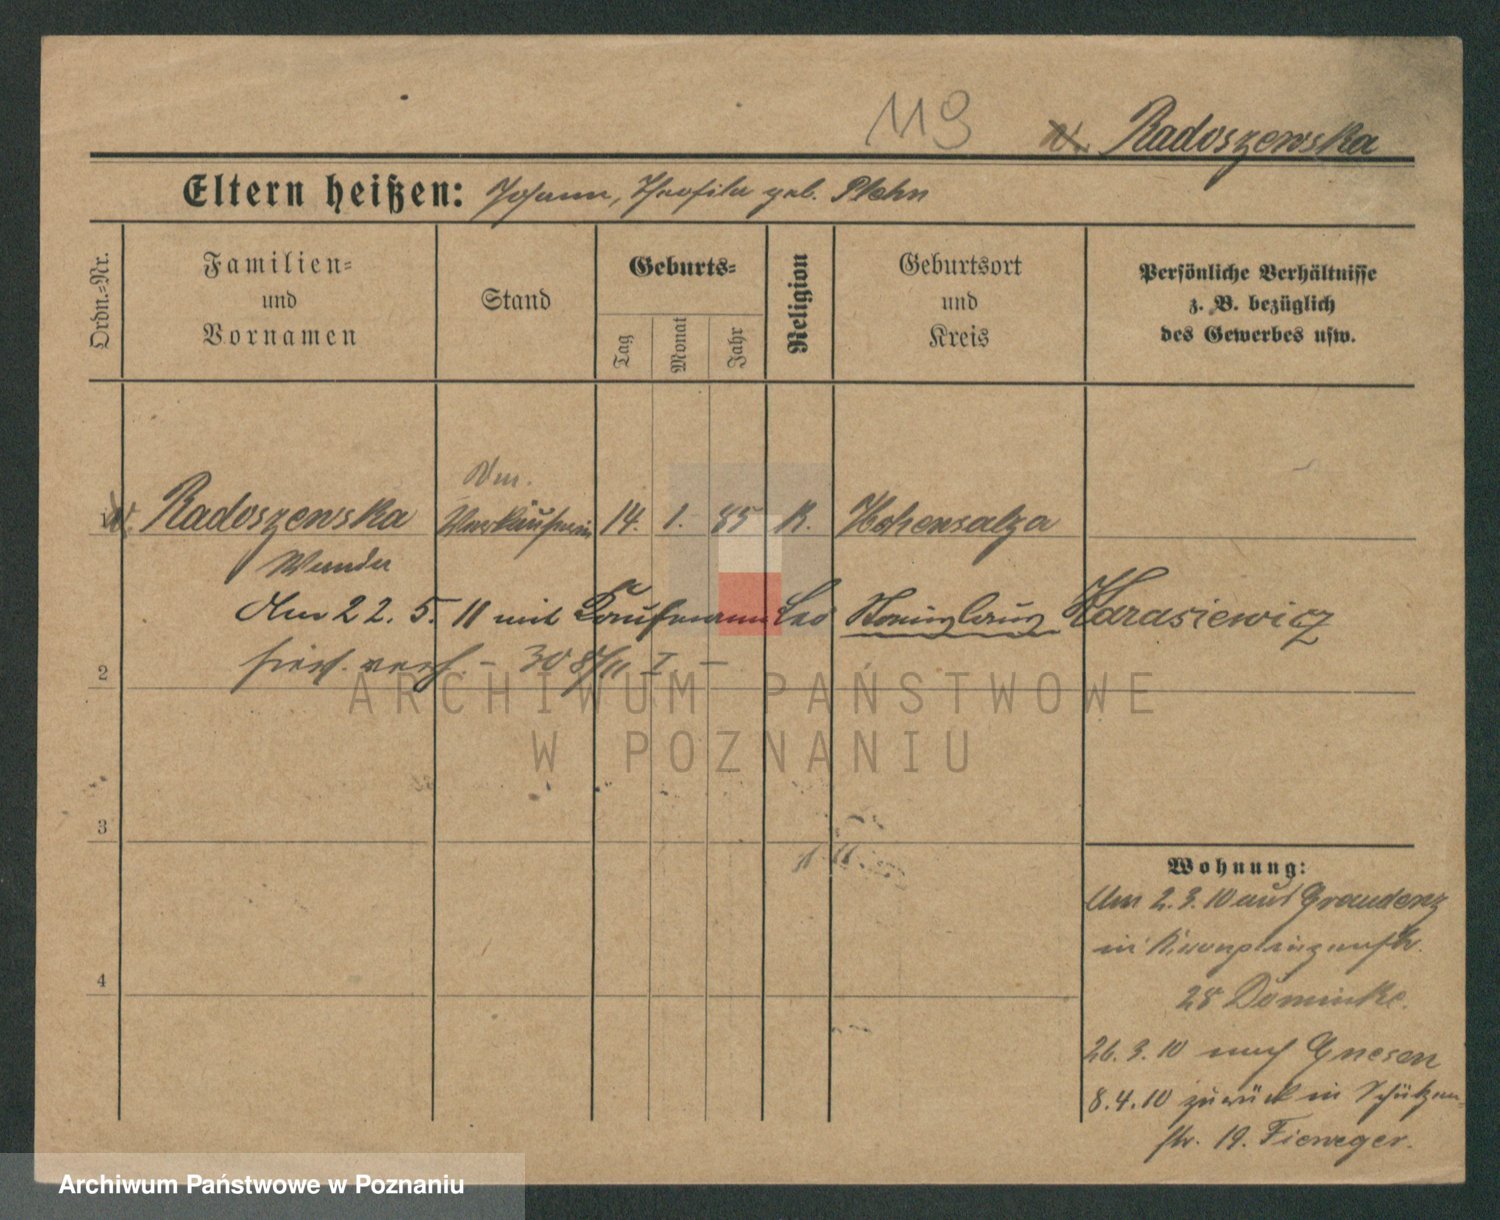 119
Radoszewska
Eltern heißen: Johann, Theofila geb. Plehn
Ordn.-Nr.
Familien-
und
Vornamen
Stand
Geburts-
Tag
Monat
Jahr
Religion
Geburtsort
und
Kreis
Persönliche Verhältnisse
z. B. bezüglich
des Gewerbes usw.
Radoszewska
Verkäuferin
14. 1. 85 K. Hohensalza
Wanda
Am 22. 5. 11 mit Kaufmann Leo Karasiewicz
hier verh. - 30 8/11 I. -
2
3
4
Wohnung:
Am 2.3.10 aus Graudenz
in Kronprinzenstr.
28 Dominke.
26.3.10 nach Gnesen
8.4.10 zurück in Schützen-
str. 19. Fieweger.
ARCHIWUM PAŃSTWOWE
W POZNANIU
Archiwum Państwowe w Poznaniu